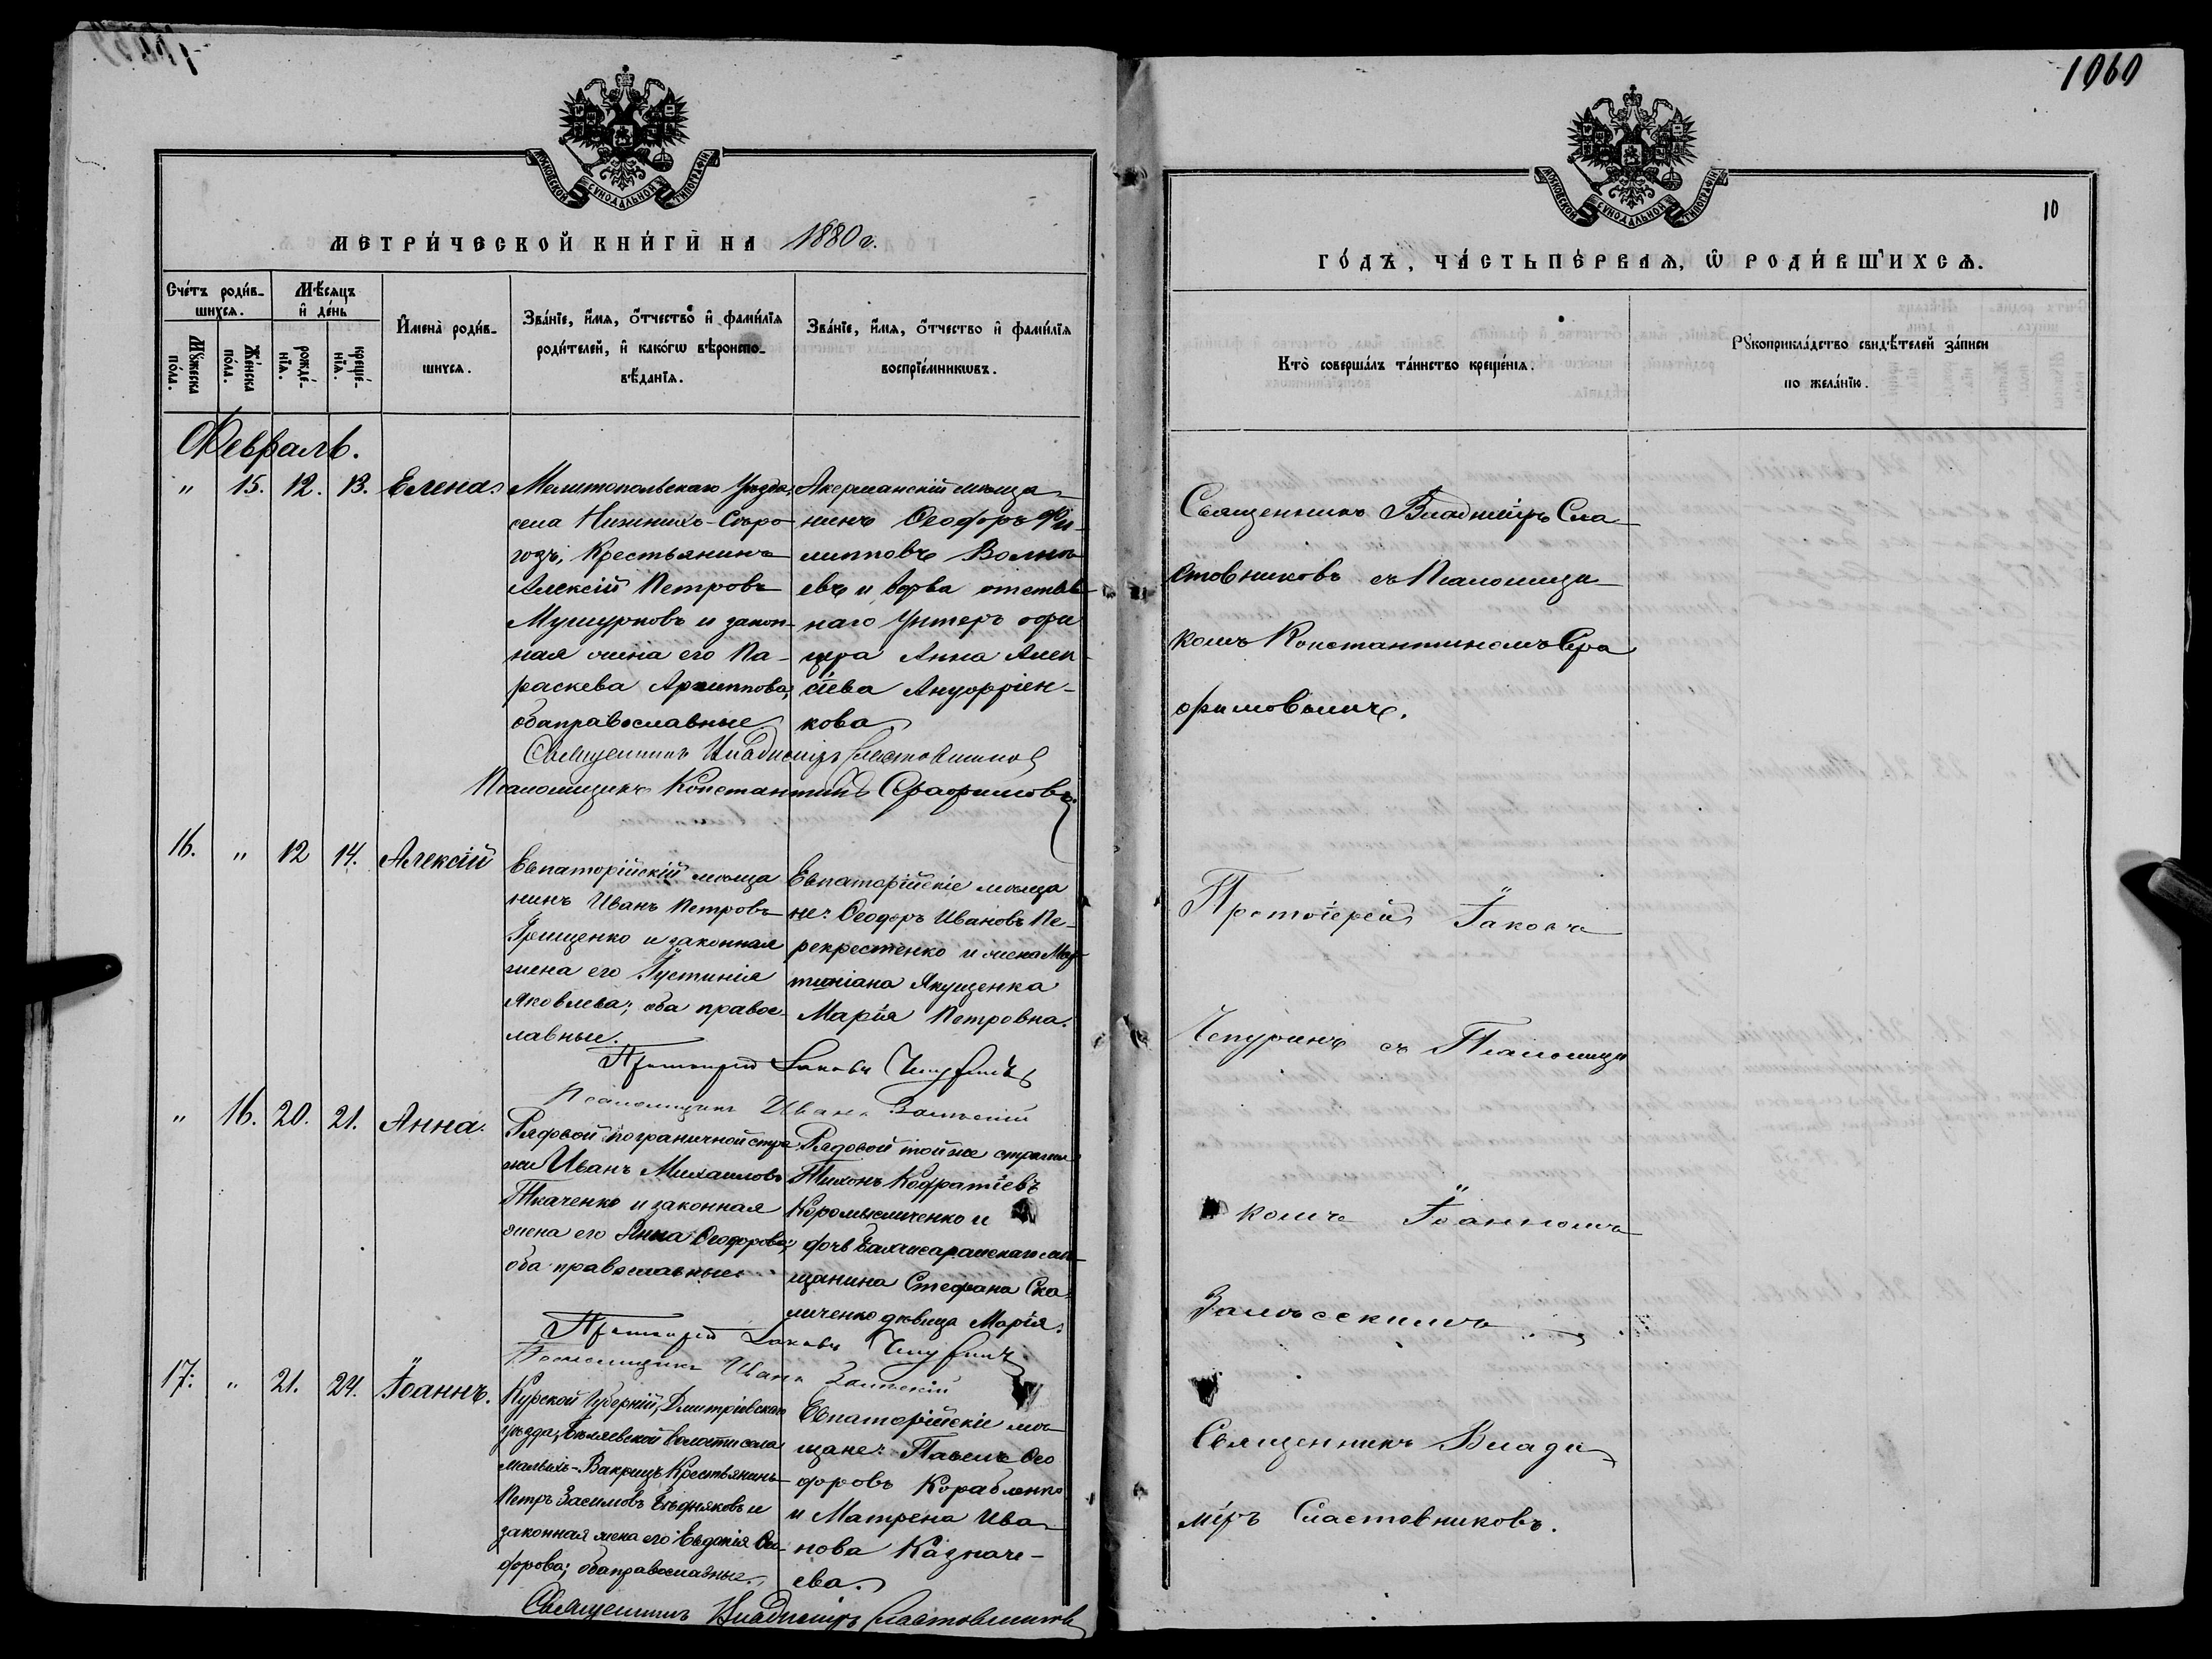 1060
МОСКОВСКОЙ СУНОДАЛЬНОЙ ТИПОГРАФІИ
МЕТРИ́ЧЕСКОЙ КНИ́ГИ НА 1880 г.
Сче́тъ роди́в-
шихся.
Мѣ́сяцъ
и де́нь
Мꙋ́жеска
по́ла.
Же́нска
по́ла.
рожде́-
нїя.
креще́-
нїя.
Имена̀ роди́в-
шихся.
Зва́нїе, и́мя, о́тчество и фами́лїя
роди́телей, и како́гѡ вѣроиспо-
вѣ́данїя.
Зва́нїе, и́мя, о́тчество и фами́лїя
воспрїе́мникѡвъ.
Февраль.
" 15. 12. 13. Елена.
Мелитопольскаго уѣзда,
села Нижнихъ-Сѣро-
гозъ, Крестьянинъ
Алексій Петровъ
и закон-
ная жена его Па-
раскева Архиппова,
оба православные
Акерманскій мѣща-
нинъ Ѳеодоръ Фи-
липповъ
евъ и вдова отстав-
наго унтеръ офи
цера Анна Алек-
сіева
кова
Священникъ Владиміръ Сластовниковъ
Псаломщикъ Константинъ Серафимовъ
16. " 12 14. Алексій
Евпаторійскій мѣща
нинъ Иванъ Петровъ
Грищенко и законная
жена его Іустинія
Яковлева; оба правос-
лавные.
Евпаторійскіе мѣща
не: Ѳеодоръ Ивановъ Пе-
рекрестенко и жена Мар-
тиніана Якущенка
Марія Петровна.
Протоіерей Іаковъ Чепуринъ
Псаломщикъ Иванъ Залѣсскій
" 16. 20. 21. Анна.
Рядовой пограничной стра
жи Иванъ Михаиловъ
Ткаченко и законная
жена его Анна Ѳеодорова;
оба православные
Рядовой тойже стражи
Тихонъ Кодратіевъ
Коромысличенко и
дочь Бахчисарайскаго мѣ-
щанина Стефана Ска
личенко дѣвица Марія.
Протоіерей Іаковъ Чепуринъ
Псаломщикъ Иванъ Залѣсскій
17. " 21. 24. Іоаннъ.
Курской Губерніи, Дмитріевскаго
уѣзда, Бѣляевской волости села
Малыхъ- Крестьянинъ
Петръ Засимовъ и
законная жена его Евдокія Ѳео-
дорова; оба православные.
Евпаторійскіе мѣ-
щане: Павелъ Ѳео
доровъ Корабленко
и Матрена Ива-
нова Казначе-
ева.
Священникъ Владиміръ Сластовниковъ
МОСКОВСКОЙ СУНОДАЛЬНОЙ ТИПОГРАФІИ
10
ГО́ДЪ, ЧА́СТЬ ПЕ́РВАЯ, Ѡ РОДИ́ВШИХСЯ.
Кто̀ соверша́лъ та́инство креще́нїя.
Рꙋкоприкла́дство свидѣ́телей за́писи
по жела́нїю.
Священникъ Владиміръ Сла-
стовниковъ съ Псаломщи-
комъ Константиномъ Сера
фимовымъ.
Протоіерей Іаковъ
Чепуринъ съ Псаломщи
комъ Іоанномъ
Залѣсскимъ
Священникъ Влади-
міръ Сластовниковъ.